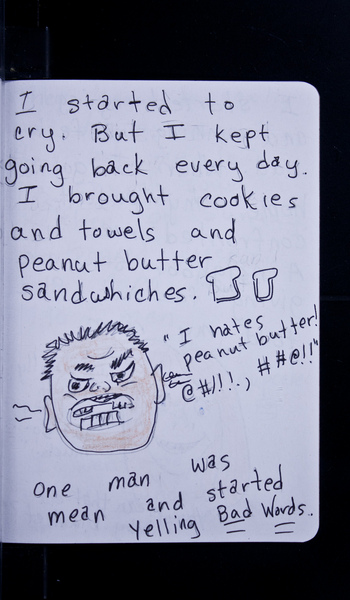 I started to
cry. But I kept
going back every day.
I brought cookies
and towels and
peanut butter
sandwhiches.
"I hates
peanut butter!
@#!!!., ##@!!"
One man was
mean and started
yelling Bad Words..